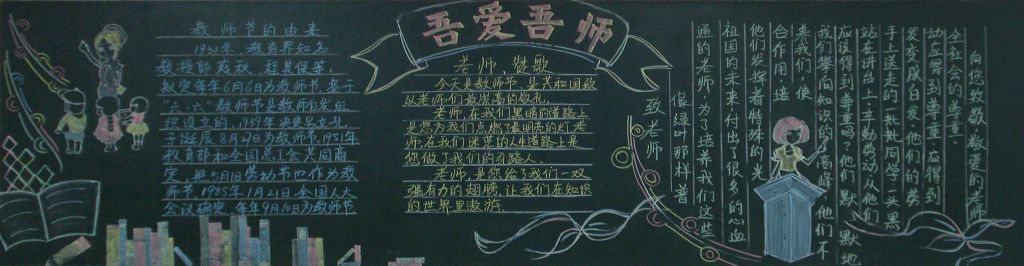 吾爱吾师
教师节的由来
1931年,教育界知名
教授邰爽秋、程其保等,
拟定每年6月6日为教师节。鉴于
“六·六”教师节是教师自发组
织设立的,1939年决定另立孔
子诞辰8月27日为教师节,1951年
教育部和全国总工会共同商
定,把5月1日劳动节也作为教
师节。1985年1月21日全国人大
会议确定,每年9月10日为教师节
老师,赞歌
今天是教师节,是共和国致
以老师们最崇高的敬礼。
老师,在我们黑暗的道路上
是您为我们点燃了最明亮的灯老
师,在我们迷茫的人生道路上是
您做了我们的引路人。
老师,是您给了我们一双
强有力的翅膀,让我们在知识
的世界里遨游。
向您致敬,敬爱的老师
全社会的尊重。
动应得到尊重,应得到
发变成白发,他们的劳
手上送走的一批批同学,一头黑
站在讲台上,辛勤劳动,从他们
应该得到尊重吗?他们默默地
我们攀向知识的高峰,他们不
美我们,使
合作用途
他们发挥着特殊的光
祖国的未来付出了很多的心血
通的老师,为了培养我们这些
像绿叶那样普
致老师